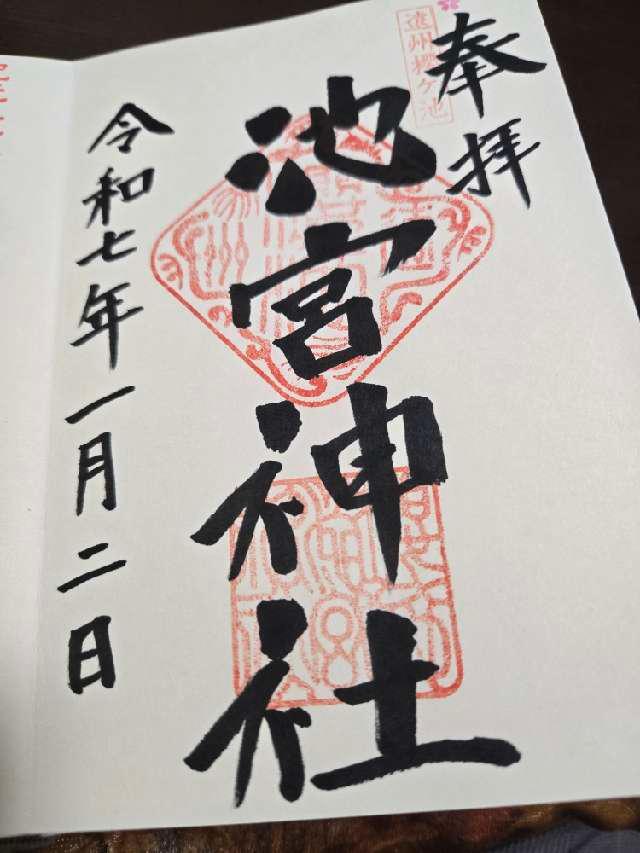 奉拝
遠州櫻ケ池
池宮神社
令和七年一月二日